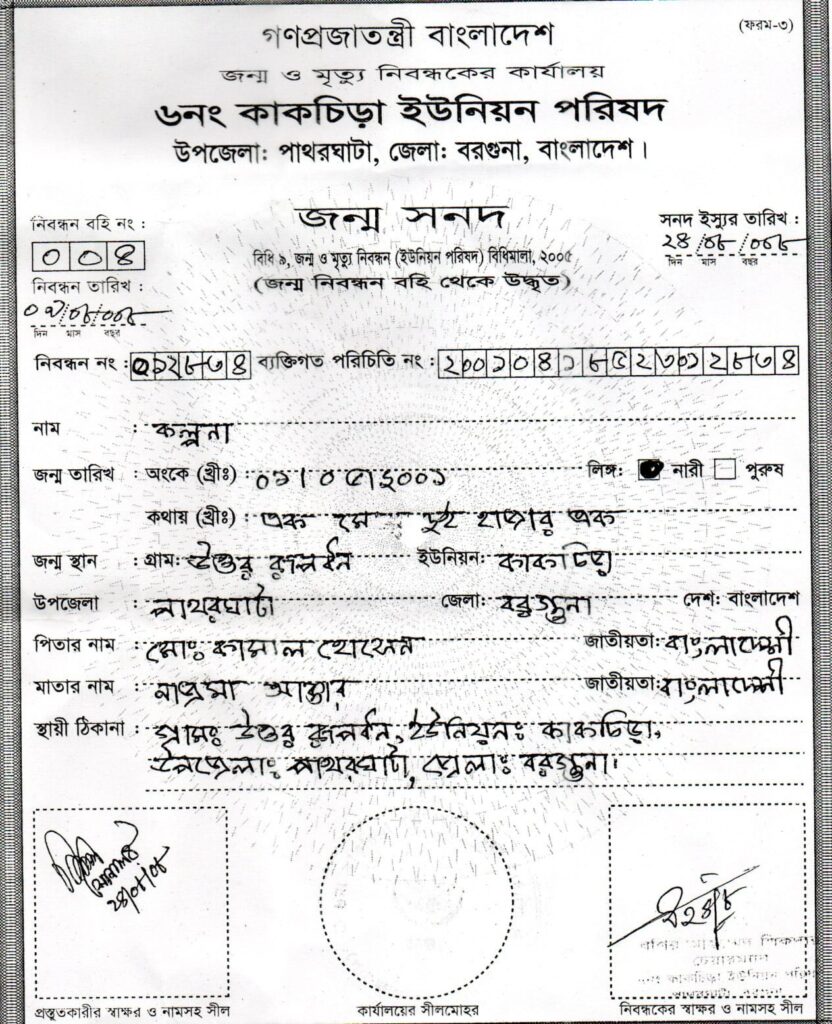 (ফরম-৩)
গণপ্রজাতন্ত্রী বাংলাদেশ
জন্ম ও মৃত্যু নিবন্ধকের কার্যালয়
৬নং কাকচিড়া ইউনিয়ন পরিষদ
উপজেলা: পাথরঘাটা, জেলা: বরগুনা, বাংলাদেশ।
জন্ম সনদ
নিবন্ধন বহি নং :
সনদ ইস্যুর তারিখ :
০০৪
২৪/০৮/০৮
দিন মাস বছর
বিধি ৯, জন্ম ও মৃত্যু নিবন্ধন (ইউনিয়ন পরিষদ) বিধিমালা, ২০০৫
(জন্ম নিবন্ধন বহি থেকে উদ্ধৃত)
নিবন্ধন তারিখ :
দিন মাস বছর
নিবন্ধন নং : ০১২৮৭৪ ব্যক্তিগত পরিচিতি নং :
নাম : কল্পনা
জন্ম তারিখ : অংকে (খ্রীঃ) : ০১/০৫/২০০১ লিঙ্গ: নারী পুরুষ
কথায় (খ্রীঃ) : এক মে দুই হাজার এক
জন্ম স্থান : গ্রাম: উত্তর রূপধন ইউনিয়ন: কাকচিড়া
উপজেলা : পাথরঘাটা জেলা: বরগুনা দেশ: বাংলাদেশ
পিতার নাম : মোঃ কামাল হোসেন জাতীয়তা: বাংলাদেশী
মাতার নাম : নাজমা আক্তার জাতীয়তা: বাংলাদেশী
স্থায়ী ঠিকানা : গ্রামঃ উত্তর রূপধন, ইউনিয়নঃ কাকচিড়া,
উপজেলাঃ পাথরঘাটা, জেলাঃ বরগুনা।
২৪/০৮/০৮
চেয়ারম্যান
৬নং কাকচিড়া ইউনিয়ন পরিষদ
পাথরঘাটা, বরগুনা
প্রস্তুতকারীর স্বাক্ষর ও নামসহ সীল কার্যালয়ের সীলমোহর নিবন্ধকের স্বাক্ষর ও নামসহ সীল